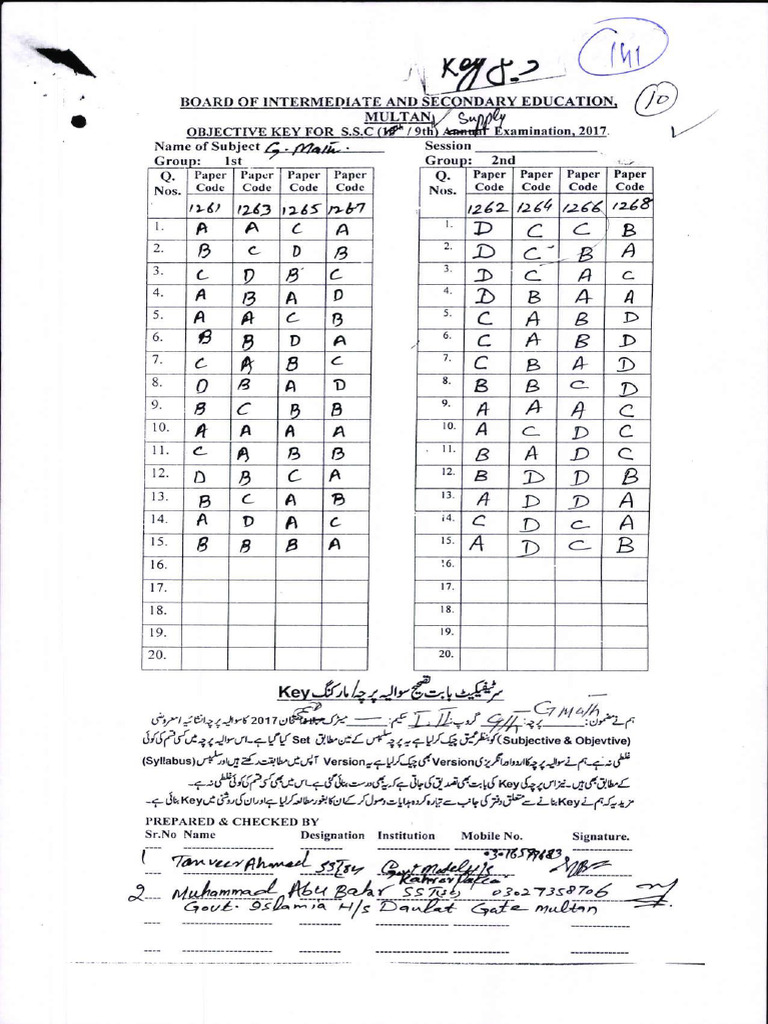 141
Key S.
10
BOARD OF INTERMEDIATE AND SECONDARY EDUCATION,
MULTAN, Supply
OBJECTIVE KEY FOR S.S.C (10th / 9th) Annual Examination, 2017.
Name of Subject G. Math. Session
Group: 1st Group: 2nd
Q. Nos. Paper Code Paper Code Paper Code Paper Code Q. Nos. Paper Code Paper Code Paper Code Paper Code
1261 1263 1265 1267 1262 1264 1266 1268
1. A A C A 1. D C C B
2. B C D B 2. D C B A
3. C D B C 3. D C A C
4. A B A D 4. D B A A
5. A A C B 5. C A B D
6. B B D A 6. C A B D
7. C A B C 7. C B A D
8. D B A D 8. B B C D
9. B C B B 9. A A A C
10. A A A A 10. A C D C
11. C A B B 11. B A D C
12. D B C A 12. B D D B
13. B C A B 13. A D D A
14. A D A C 14. C D C A
15. B B B A 15. A D C B
16. 16.
17. 17.
18. 18.
19. 19.
20. 20.
سرٹیفکیٹ بابت تصحیح سوالیہ پرچہ/مارکنگ Key
ہم نے مضمون: G Math پرچہ: 9th گروپ: I, II سکیم: میٹرک امتحان 2017 کا سوالیہ پرچہ انشائیہ/معروضی
(Subjective & Objevtive) کو بنظر عمیق چیک کر لیا ہے یہ پرچہ سلیبس کے عین مطابق Set کیا گیا ہے۔ اس سوالیہ پرچہ میں کسی قسم کی کوئی
غلطی نہ ہے۔ ہم نے سوالیہ پرچہ کا اردو اور انگریزی Version بھی چیک کر لیا ہے یہ Version آپس میں مطابقت رکھتے ہیں اور سلیبس (Syllabus)
کے مطابق بھی ہیں۔ نیز اس پرچہ کی Key کی بابت بھی تصدیق کی جاتی ہے کہ یہ بھی درست بنائی گئی ہے۔ اس میں بھی کسی قسم کی کوئی غلطی نہ ہے۔
مزید یہ کہ ہم نے Key بنانے سے متعلق دفتر کی جانب سے تیار کردہ ہدایات وصول کر کے ان کا بغور مطالعہ کر لیا ہے اور ان کی روشنی میں Key بنائی ہے۔
PREPARED & CHECKED BY
Sr.No Name Designation Institution Mobile No. Signature.
1 Tanveer Ahmad SST Govt Model H/S
2 Muhammad Abu Bakr SST 03027358706
Govt. Islamia H/s Daulat Gate Multan